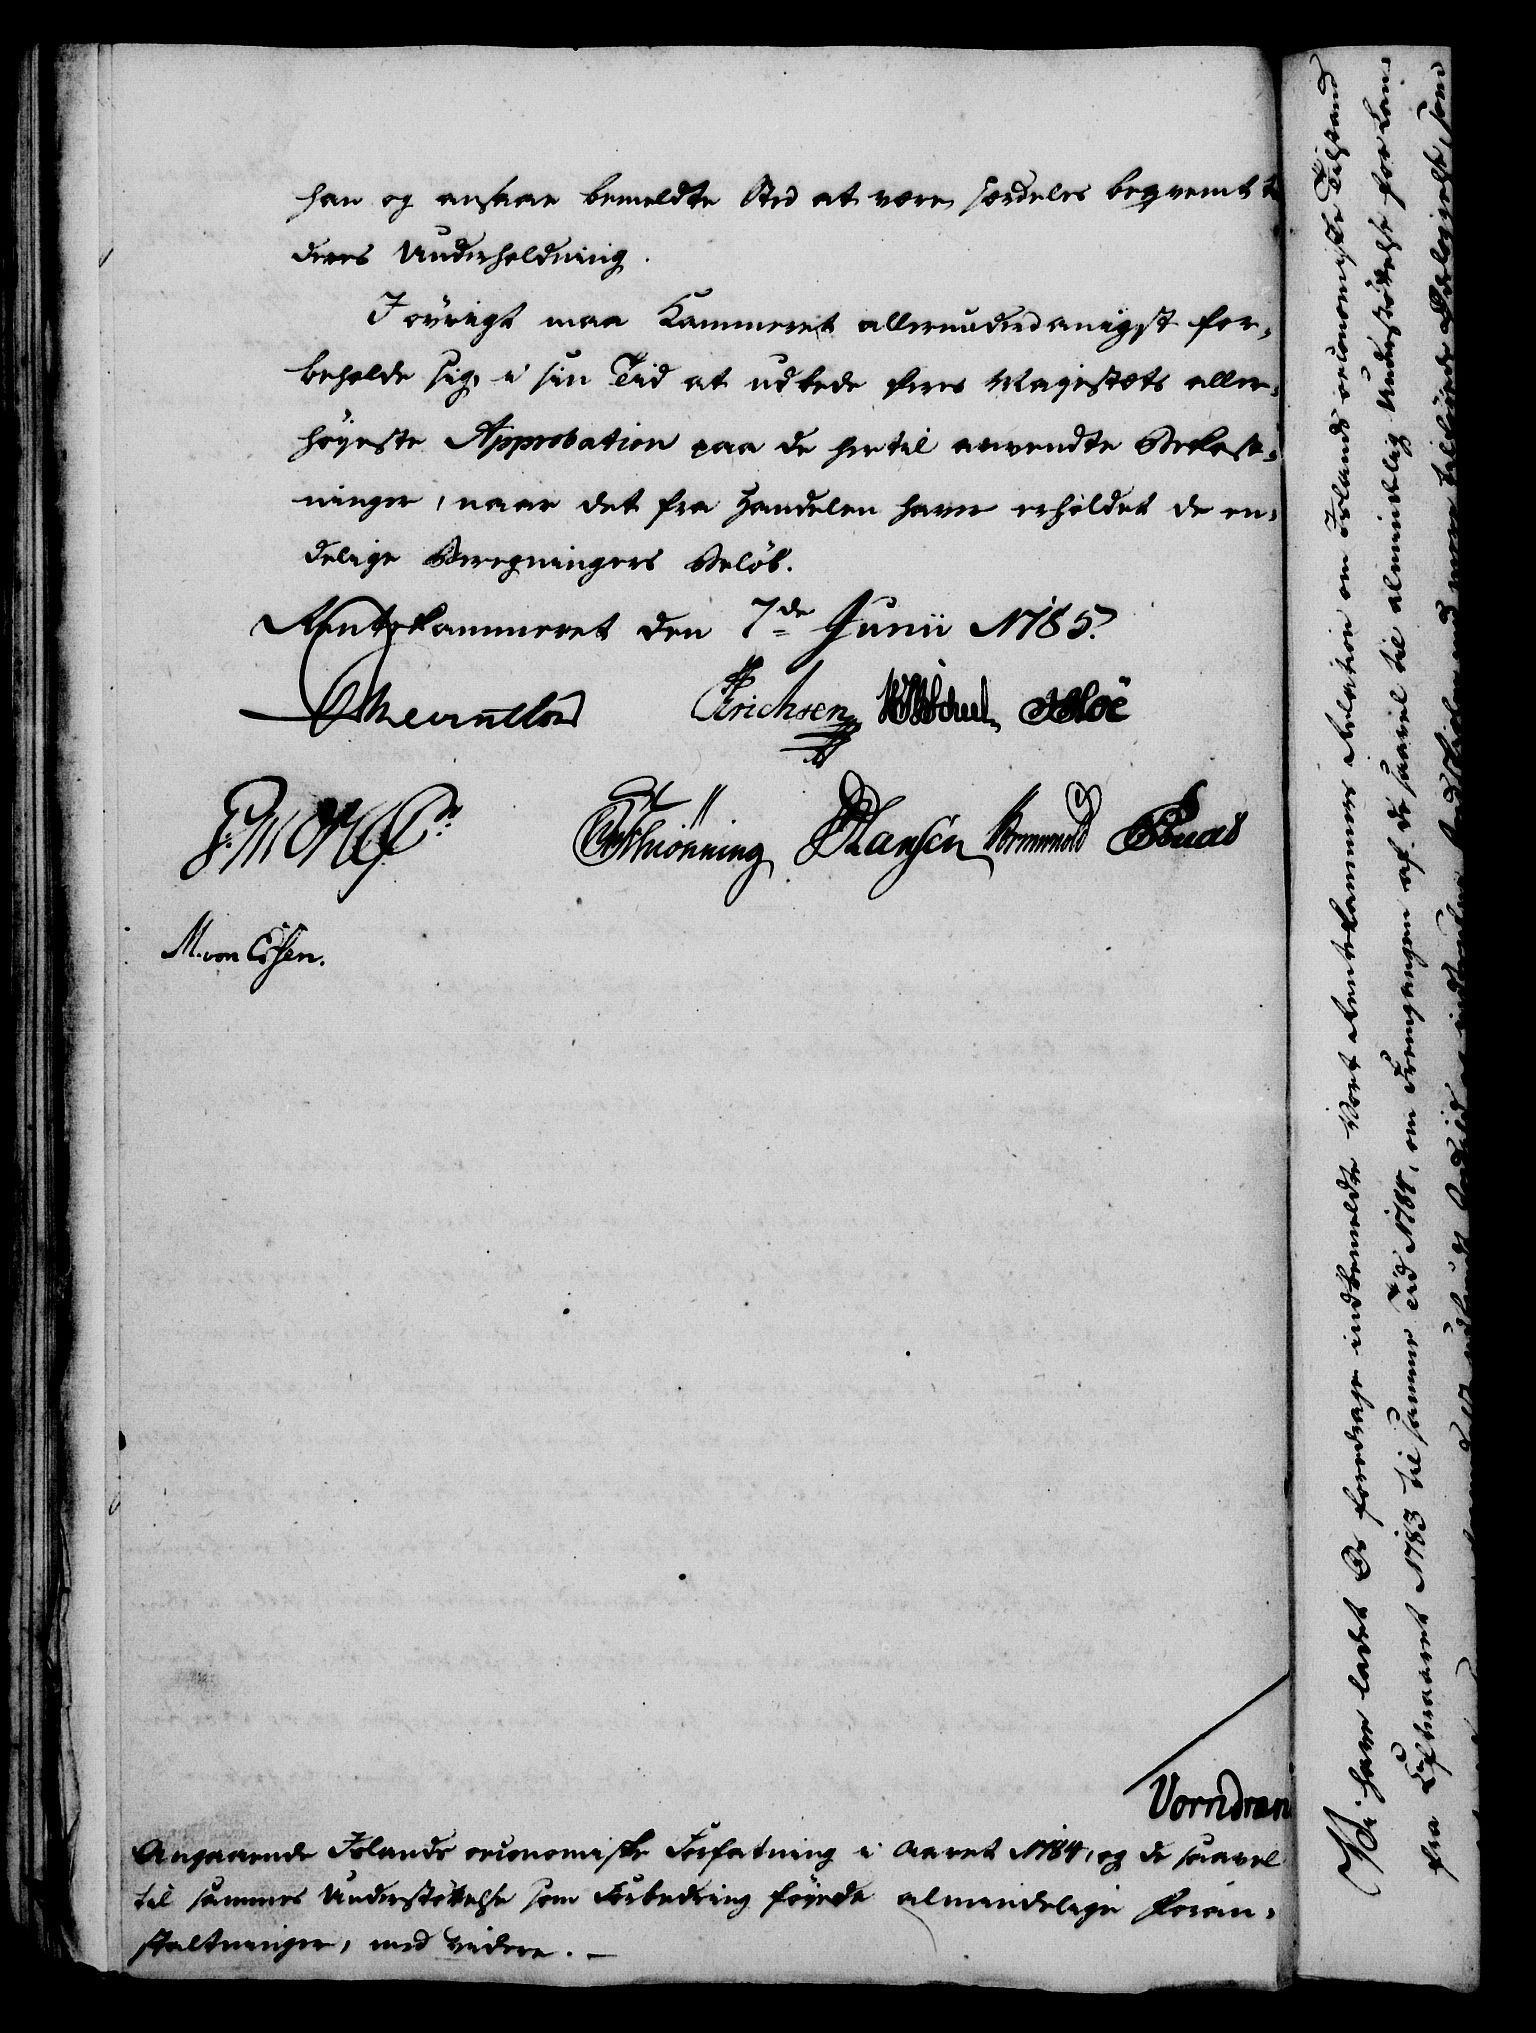 han og ansaae bemeldte Sted at være særdeles beqvemt t
deres Underholdning.
I øvrigt maa Kammeret allerunderdanigst for-
beholde sig, i sin Tid at udbede Eders Majestæts aller-
høyeste Approbation paa de hertil anvendte Bekost-
ninger, naar det fra Handelen haver erholdet de en-
delige Beregningers Beløb.
Rentekammeret den 7de Junii 1785.
Reventlow Erichsen
Schiønning Hansen
M. von Essen.
Vorndran
Angaaende Islands oeconomiske Forfatning i Aaret 1784, og de saavel
til sammes Understøttelse som Forbedring føyede almindelige Foran-
staltninger, med videre. -
Vi have ladet Os foredrage indbemeldte Vort Rentekammers Relation om Islands oeconomiske Tilstand
fra Eftteraaret 1783 til samme Tid 1784, om Fremgangen af de saavel til almindelig Understøttelse for Lan-